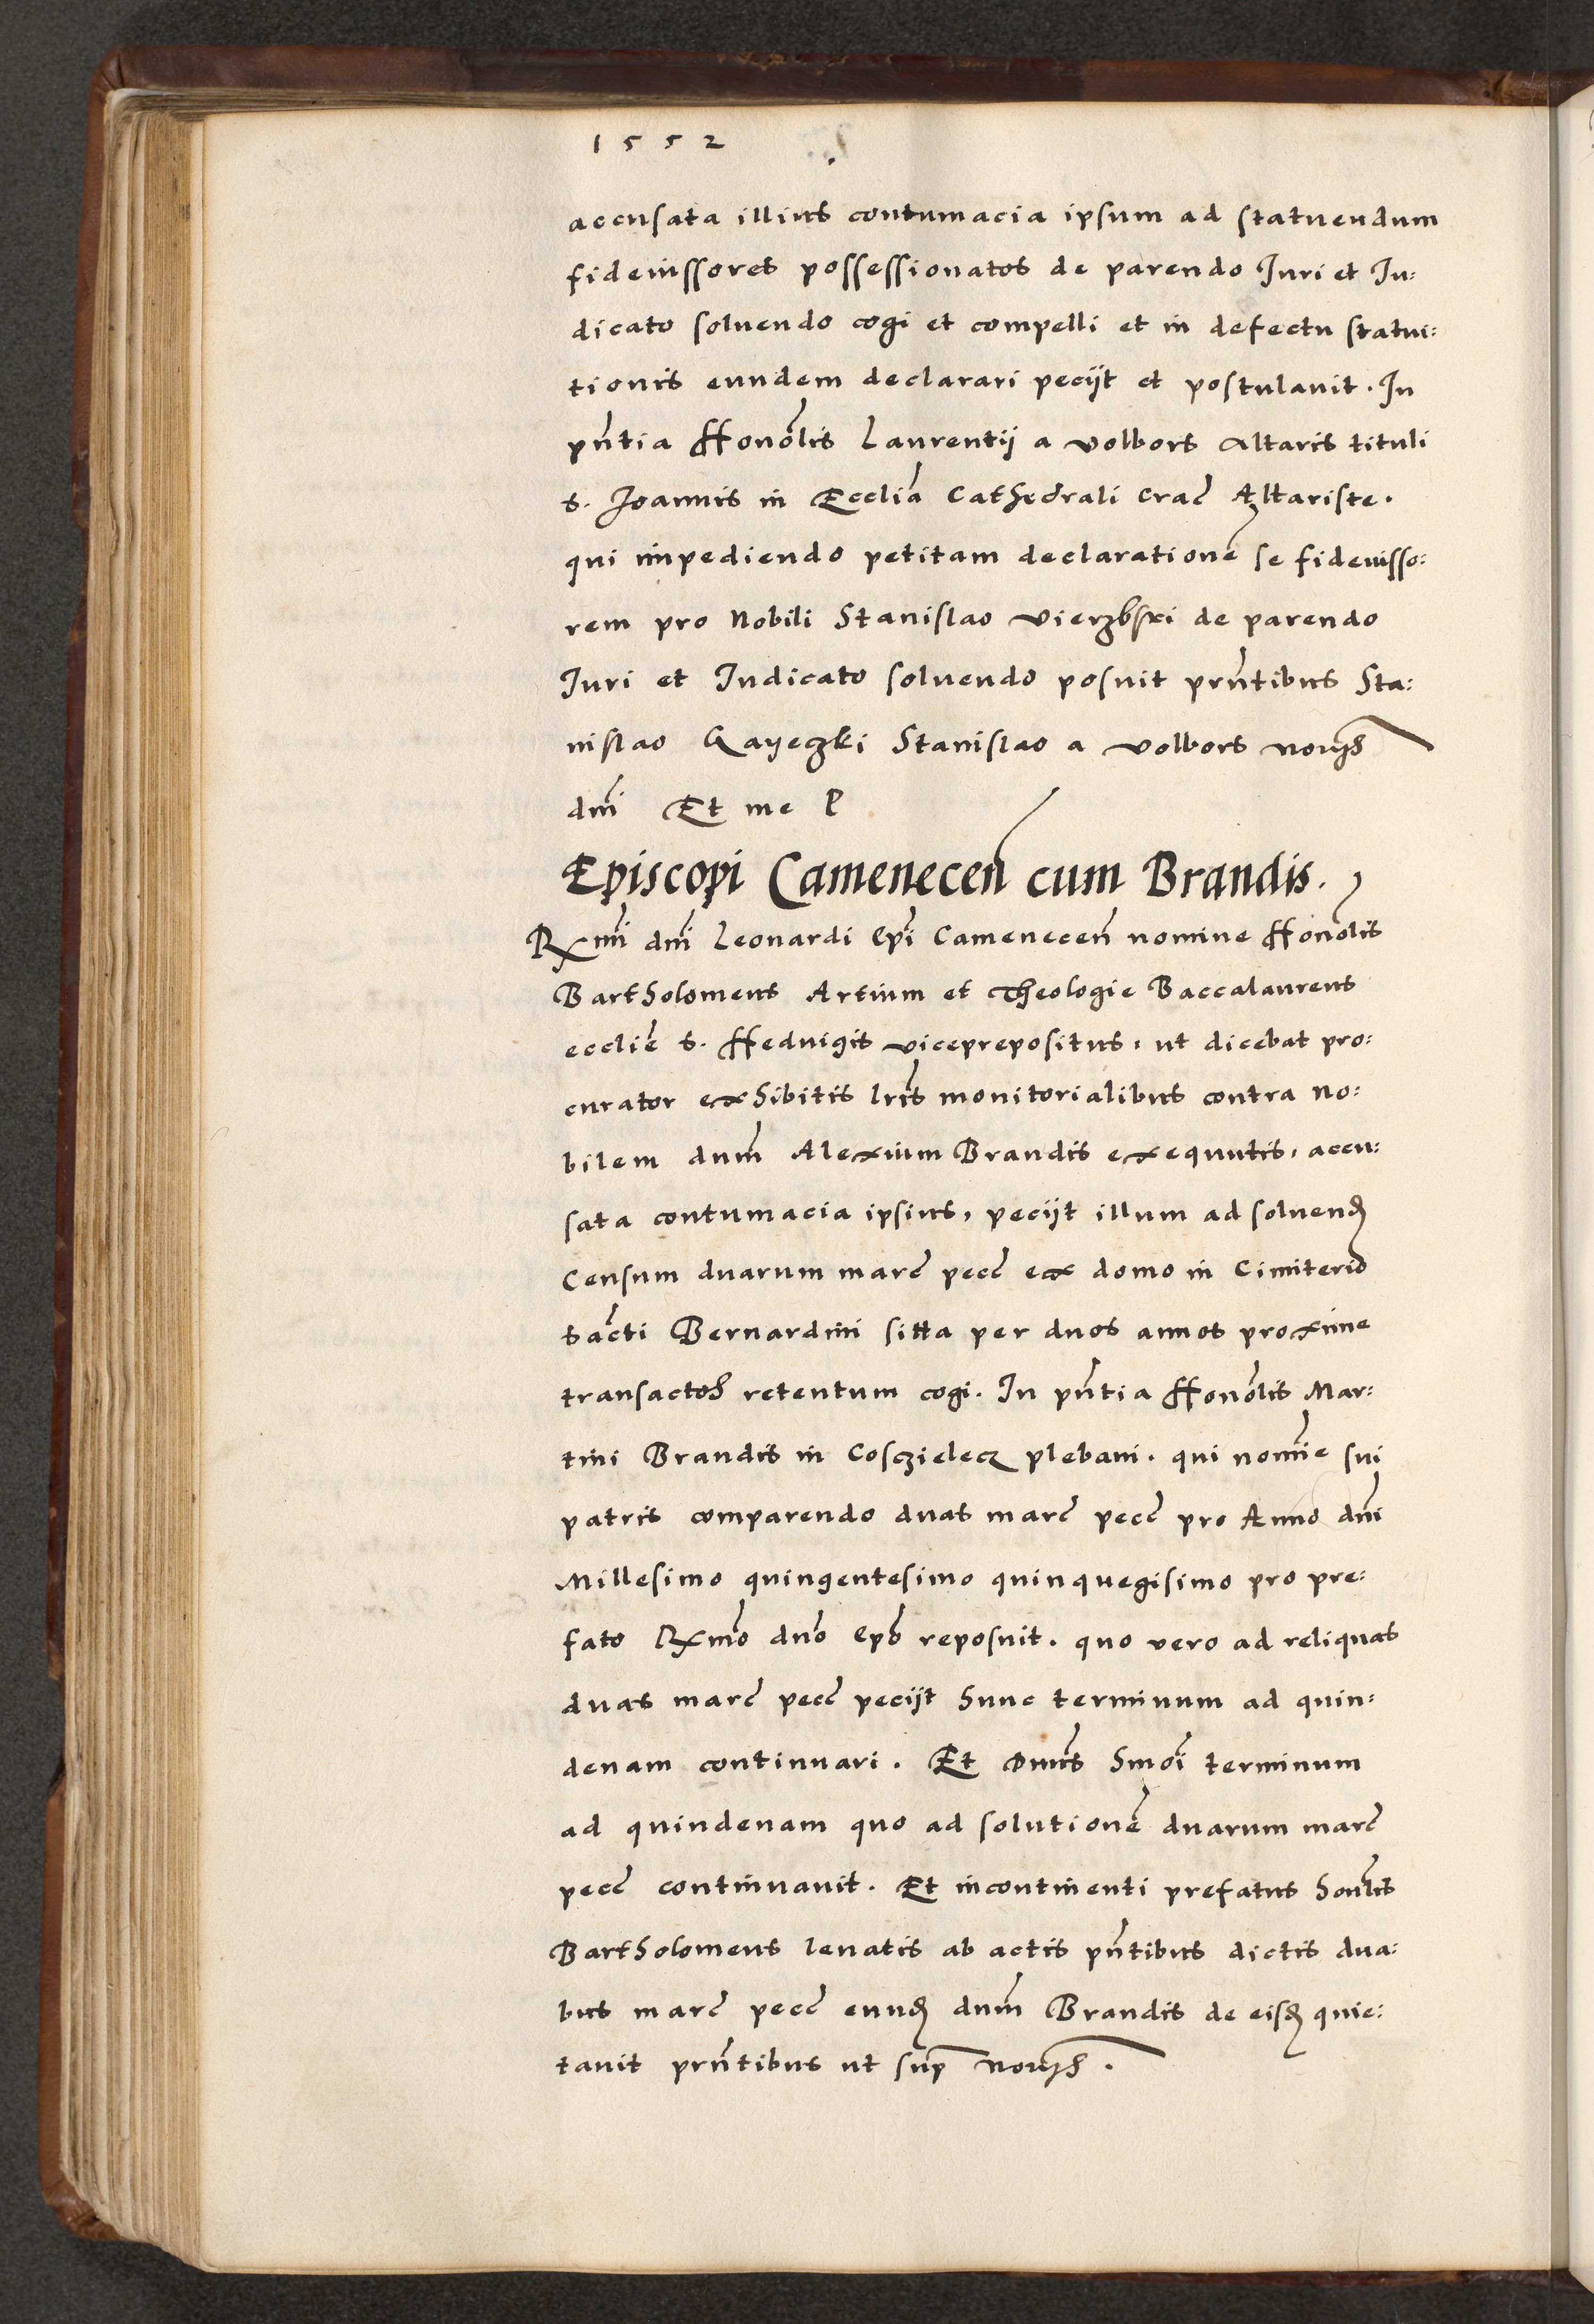 1552
accusata illius contumacia ipsum ad statuendum
fideiussores possessionatos de parendo Iuri et Iu:
dicato soluendo cogi et compelli et in defectu statui:
tionis eundem declarari pecijt et postulauit. In
pñtia Honołis Laurentij a Volbors Altaris tituli
S. Joannis in Ecclia Cathedrali Crac Altariste.
qui impediendo petitam declarationē se fideiusso:
rem pro Nobili Stanislao Vierzbski de parendo
Iuri et Iudicato soluendo posuit prñtibus Sta:
nislao Gayeczki Stanislao a Volbors
dni Et me P
Episcopi Camenecen̄ cum Brandis.
Rxmi dni Leonardi Epi Camenecen̄ nomine Honołis
Bartholomeus Artium et Theologie Baccalaureus
ecclie S. Heduigis viceprepositus, ut dicebat pro:
curator exhibitis lris monitorialibus contra No:
bilem dnm Alexium Brandis exequutis, accu:
sata contumacia ipsius, pecijt illum ad soluend
Censum duarum marc pecc ex domo in Cimiterio
Sācti Bernardini sitta per duos annos proxime
transactos retentum cogi. In pñtia Honołis Mar:
tini Brandis in Cosczielecz plebani. qui nomie sui
patris comparendo duas marc pecc pro Anno dni
Millesimo quingentesimo quinquegisimo pro pre:
fato Rxmo dno Epo reposuit. quo vero ad reliquas
duas marc pecc pecijt hunc terminum ad quin:
denam continuari. Et Dnus hmoi terminum
ad quindenam quo ad solutionē duarum marc
pecc continuauit. Et incontinenti prefatus honlis
Bartholomeus leuatis ab actis pñtibus dictis dua:
bus marc pecc eund dnm Brandis de eisd quie:
tauit prñtibus ut sup